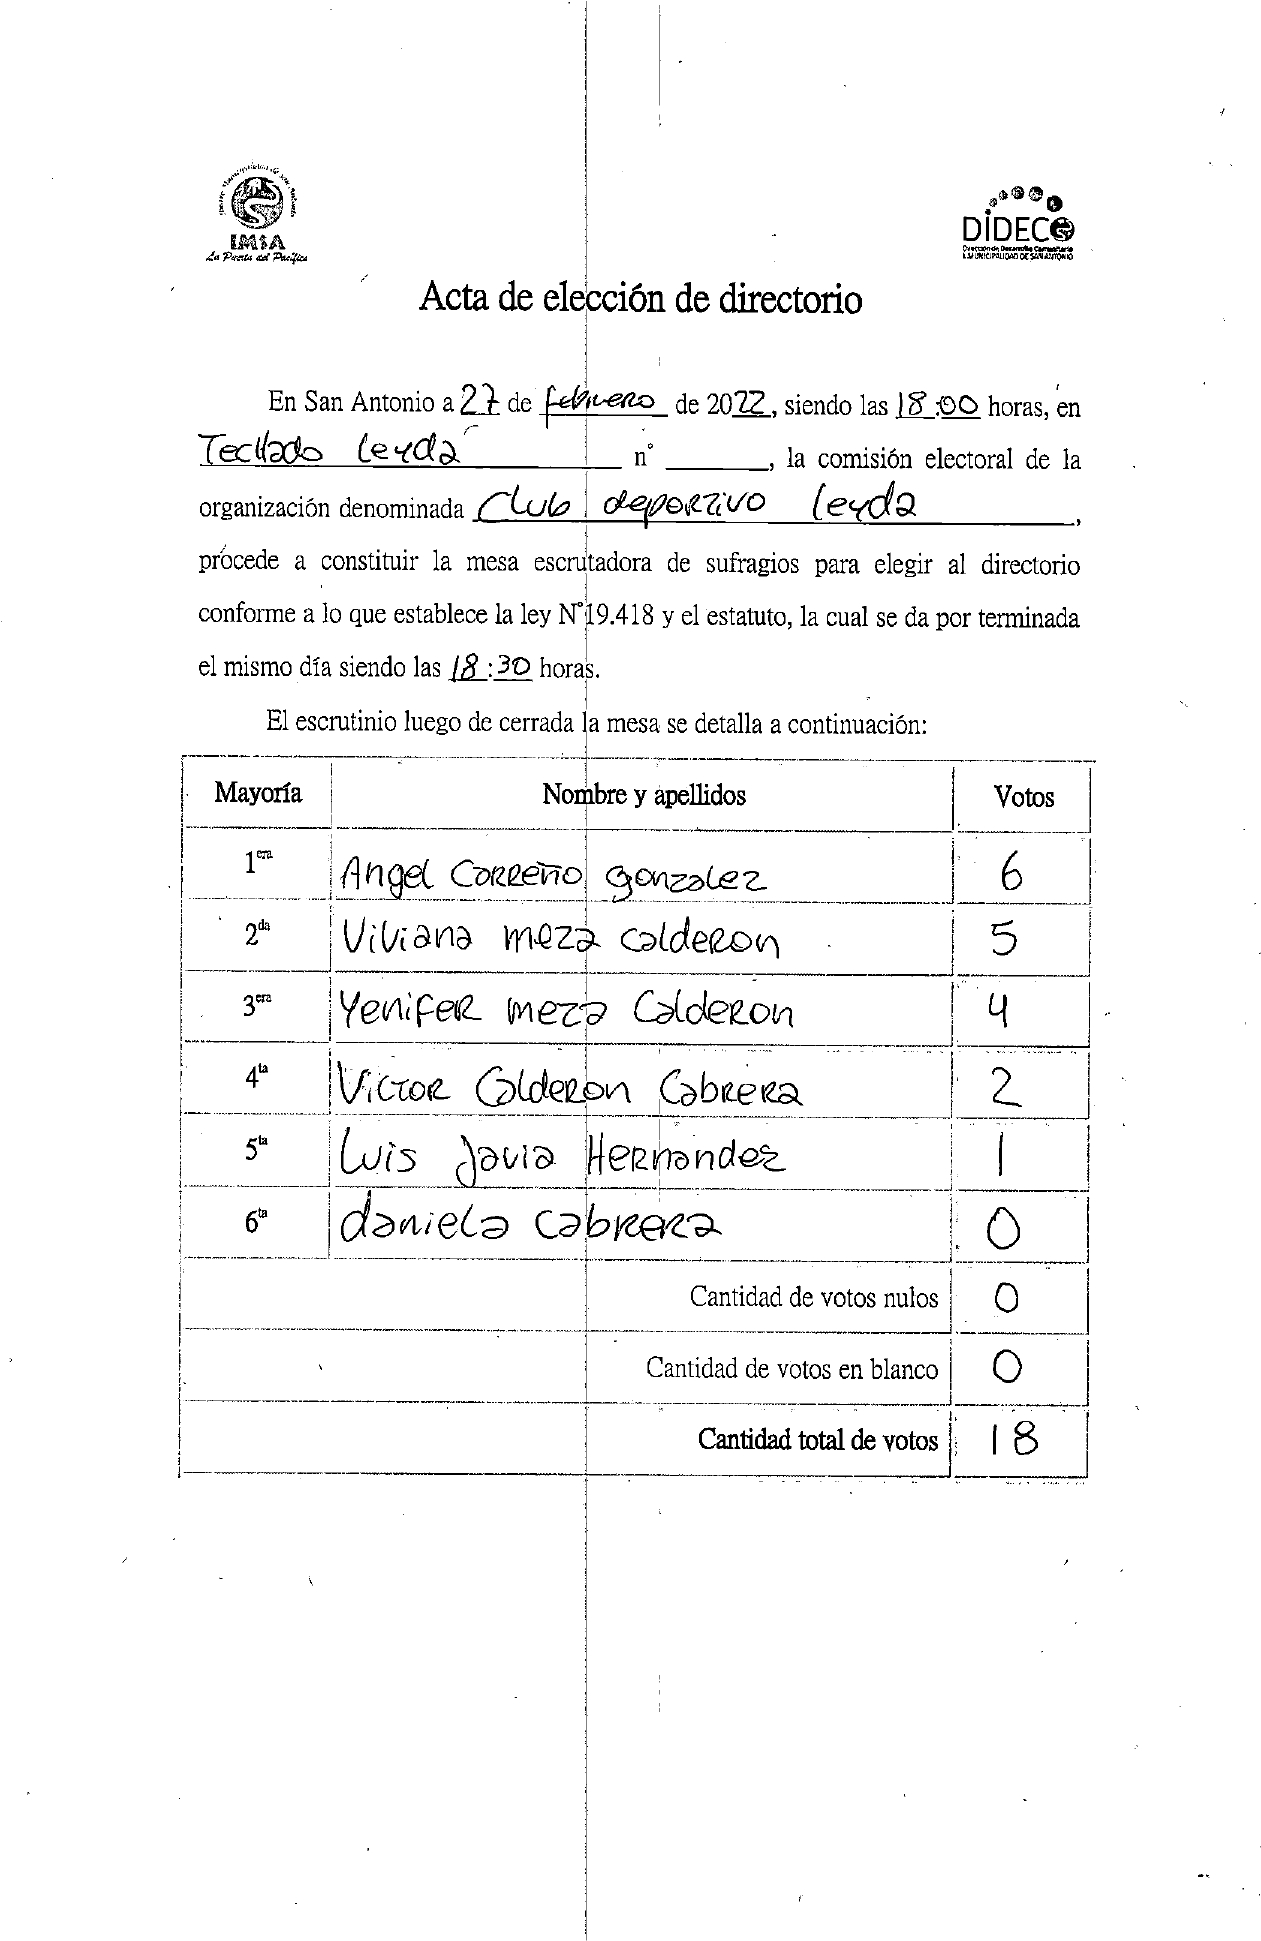 IMSA
La Puerta del Pacífico
DIDECO
Dirección de Desarrollo Comunitario
I. MUNICIPALIDAD DE SAN ANTONIO
Acta de elección de directorio
En San Antonio a 27 de febrero de 2022, siendo las 18:00 horas, en
Techado Leyda n° ________, la comisión electoral de la
organización denominada Club deportivo Leyda,
procede a constituir la mesa escrutadora de sufragios para elegir al directorio
conforme a lo que establece la ley N°19.418 y el estatuto, la cual se da por terminada
el mismo día siendo las 18:30 horas.
El escrutinio luego de cerrada la mesa se detalla a continuación:
Mayoría Nombre y apellidos Votos
1era Angel Correño gonzalez 6
2da Viviana meza calderon 5
3era Yenifer meza Calderon 4
4ta Victor Calderon Cabrera 2
5ta Luis Javia Hernandez 1
6ta daniela cabrera 0
Cantidad de votos nulos 0
Cantidad de votos en blanco 0
Cantidad total de votos 18